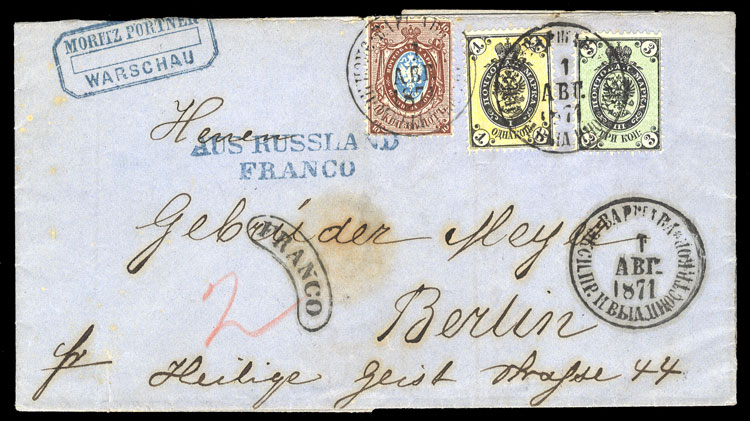 MORITZ PORTNER
WARSCHAU
1
АВГ.
1871
1
1
1
1
ОДНА КОП.
3
3
3
ТРИ КОП.
Herren
AUS RUSSLAND
FRANCO
Gebrüder Meyer
FRANCO
ВАРШАВА
1
АВГ.
1871
2
Berlin
fr
Heilige Geist Strasse 44